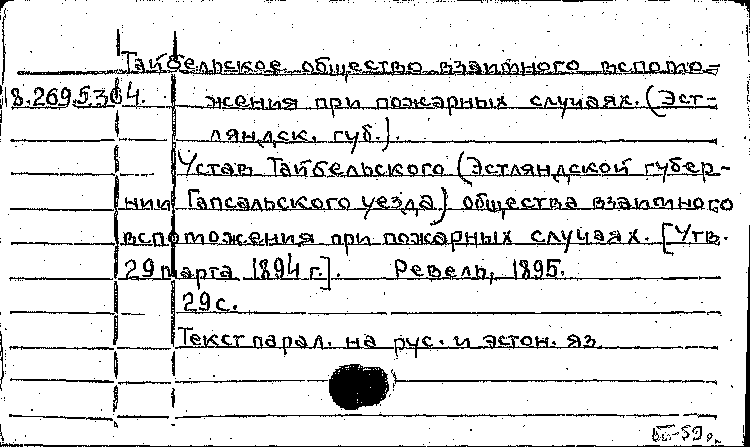 Тайбельское общество взаимного вспомо=
18.269.5.364. жения при пожарных случаях. (Эст-
ляндск. губ.).
Устав Тайбельского (Эстляндской губер-
нии Гапсальского уезда) общества взаимного
вспоможения при пожарных случаях. [Утв.
29 марта 1894 г.]. Ревель, 1895.
29 с.
Текст парал. на рус. и эстон. яз